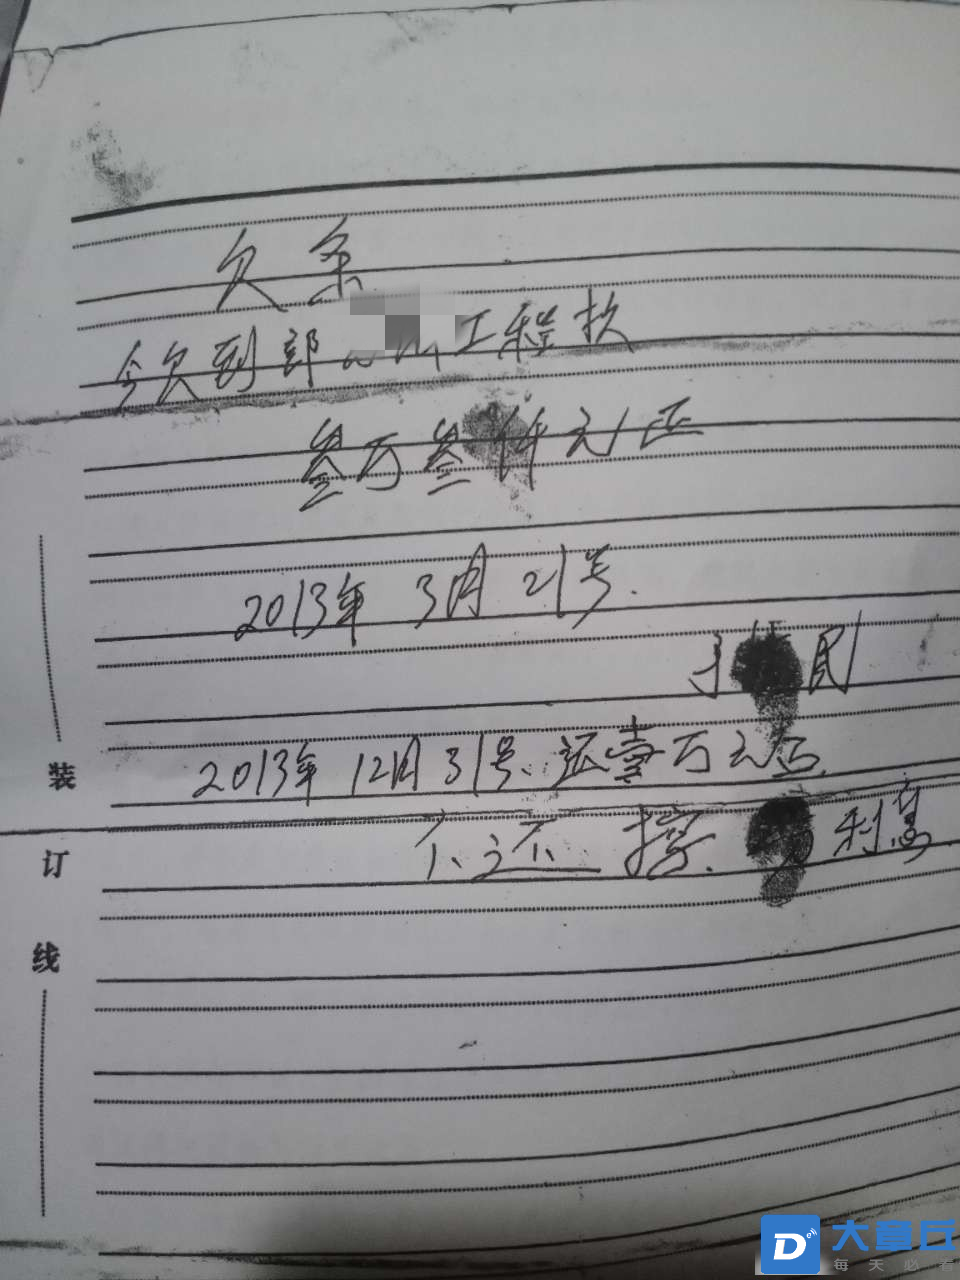 欠条
今欠到郭 工程款
叁万叁仟元正
2013年 3月 21号.
于 民
2013年 12月 31号、还壹万元正
不还 按. 利息
装
订
线
D
大章丘
每天必看